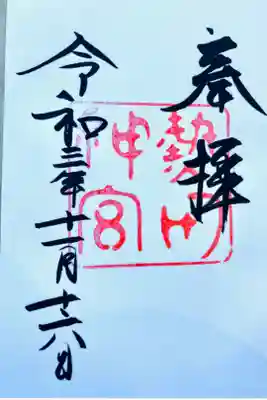 奉拝
熱田神宮
令和三年十一月十六日